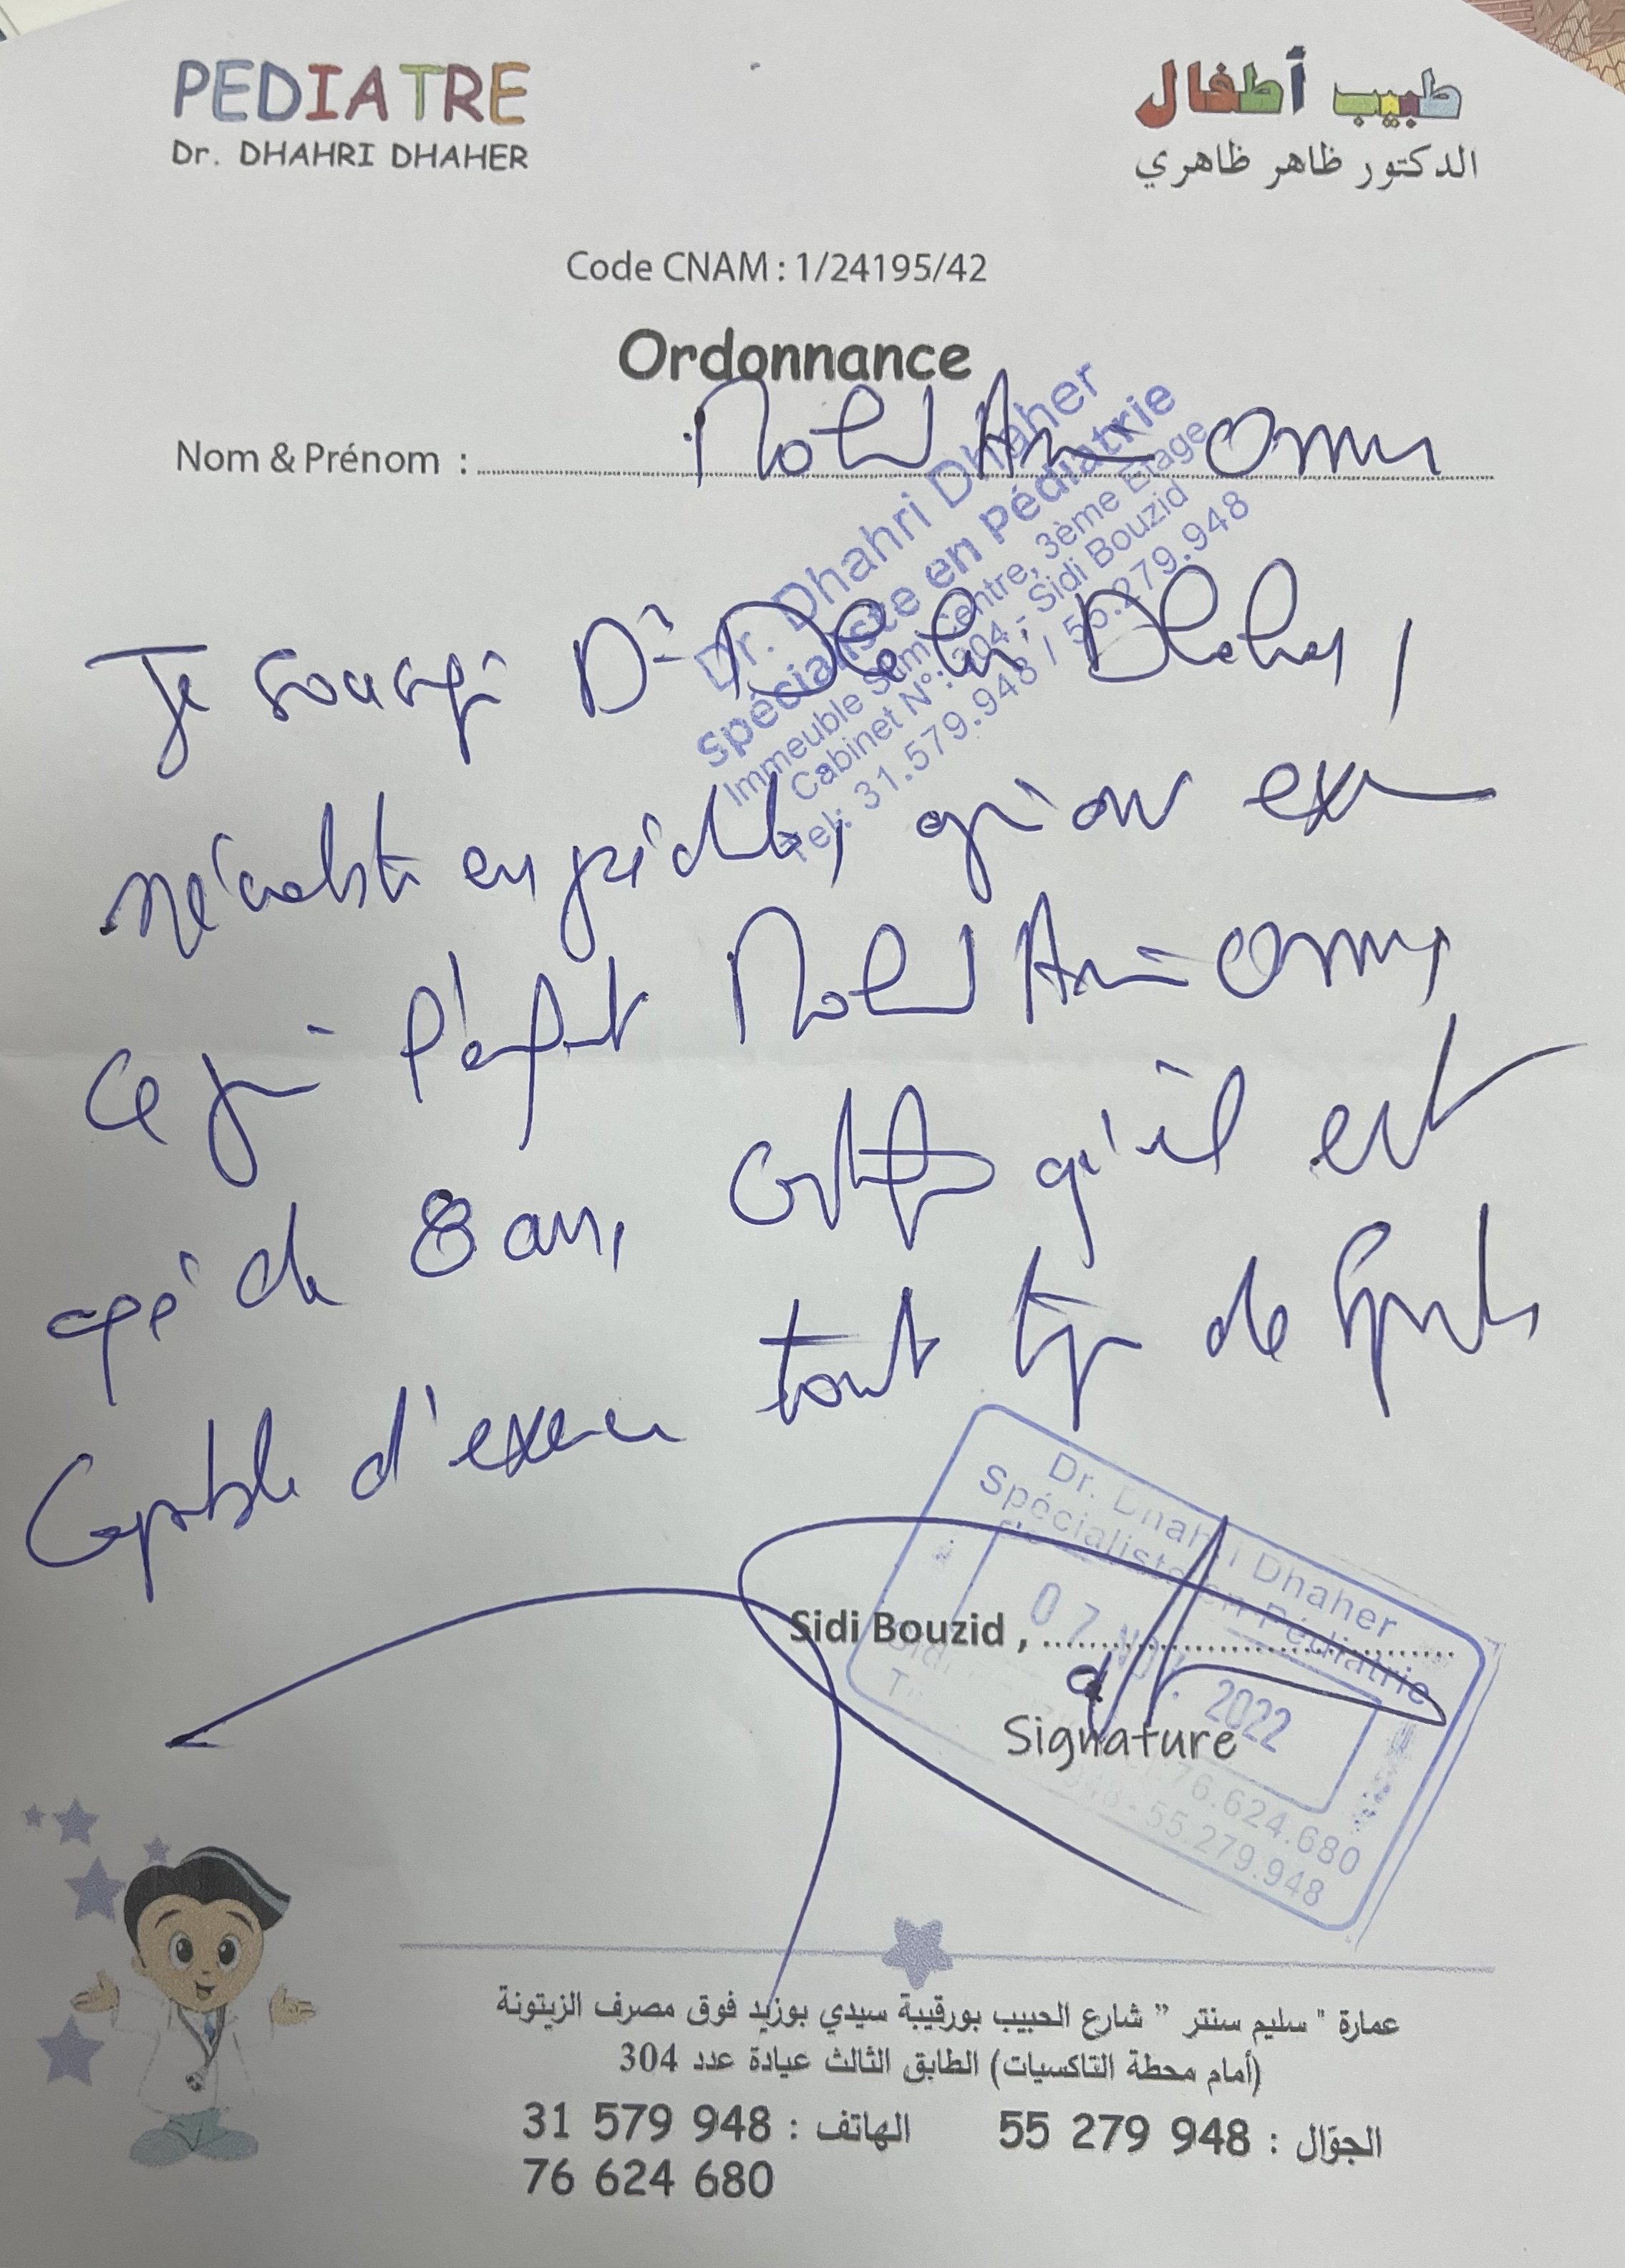 PEDIATRE
Dr. DHAHRI DHAHER
طبيب أطفال
الدكتور ظاهر ظاهري
Code CNAM : 1/24195/42
Ordonnance
Nom & Prénom : Mohd Amine
Dr. Dhahri Dhaher
Spécialiste en Pédiatrie
Immeuble Slim Centre, 3ème Etage
Cabinet N°: 304 - Sidi Bouzid
Tel: 31.579.948 / 55.279.948
Je soussigné Dr Dhahri Dhaher,
spécialiste en pédiatrie, qu'avoir examiné
ce jour l'enfant Mohd Amine
agé de 8 ans, certifie qu'il est
capable d'exercer tout type de sports
Dr. Dhahri Dhaher
Spécialiste en Pédiatrie
07 NOV. 2022
76.624.680
55.279.948
Sidi Bouzid ,
Signature
عمارة " سليم سنتر " شارع الحبيب بورقيبة سيدي بوزيد فوق مصرف الزيتونة
(أمام محطة التاكسيات) الطابق الثالث عيادة عدد 304
الجوّال : 55 279 948 الهاتف : 31 579 948
76 624 680